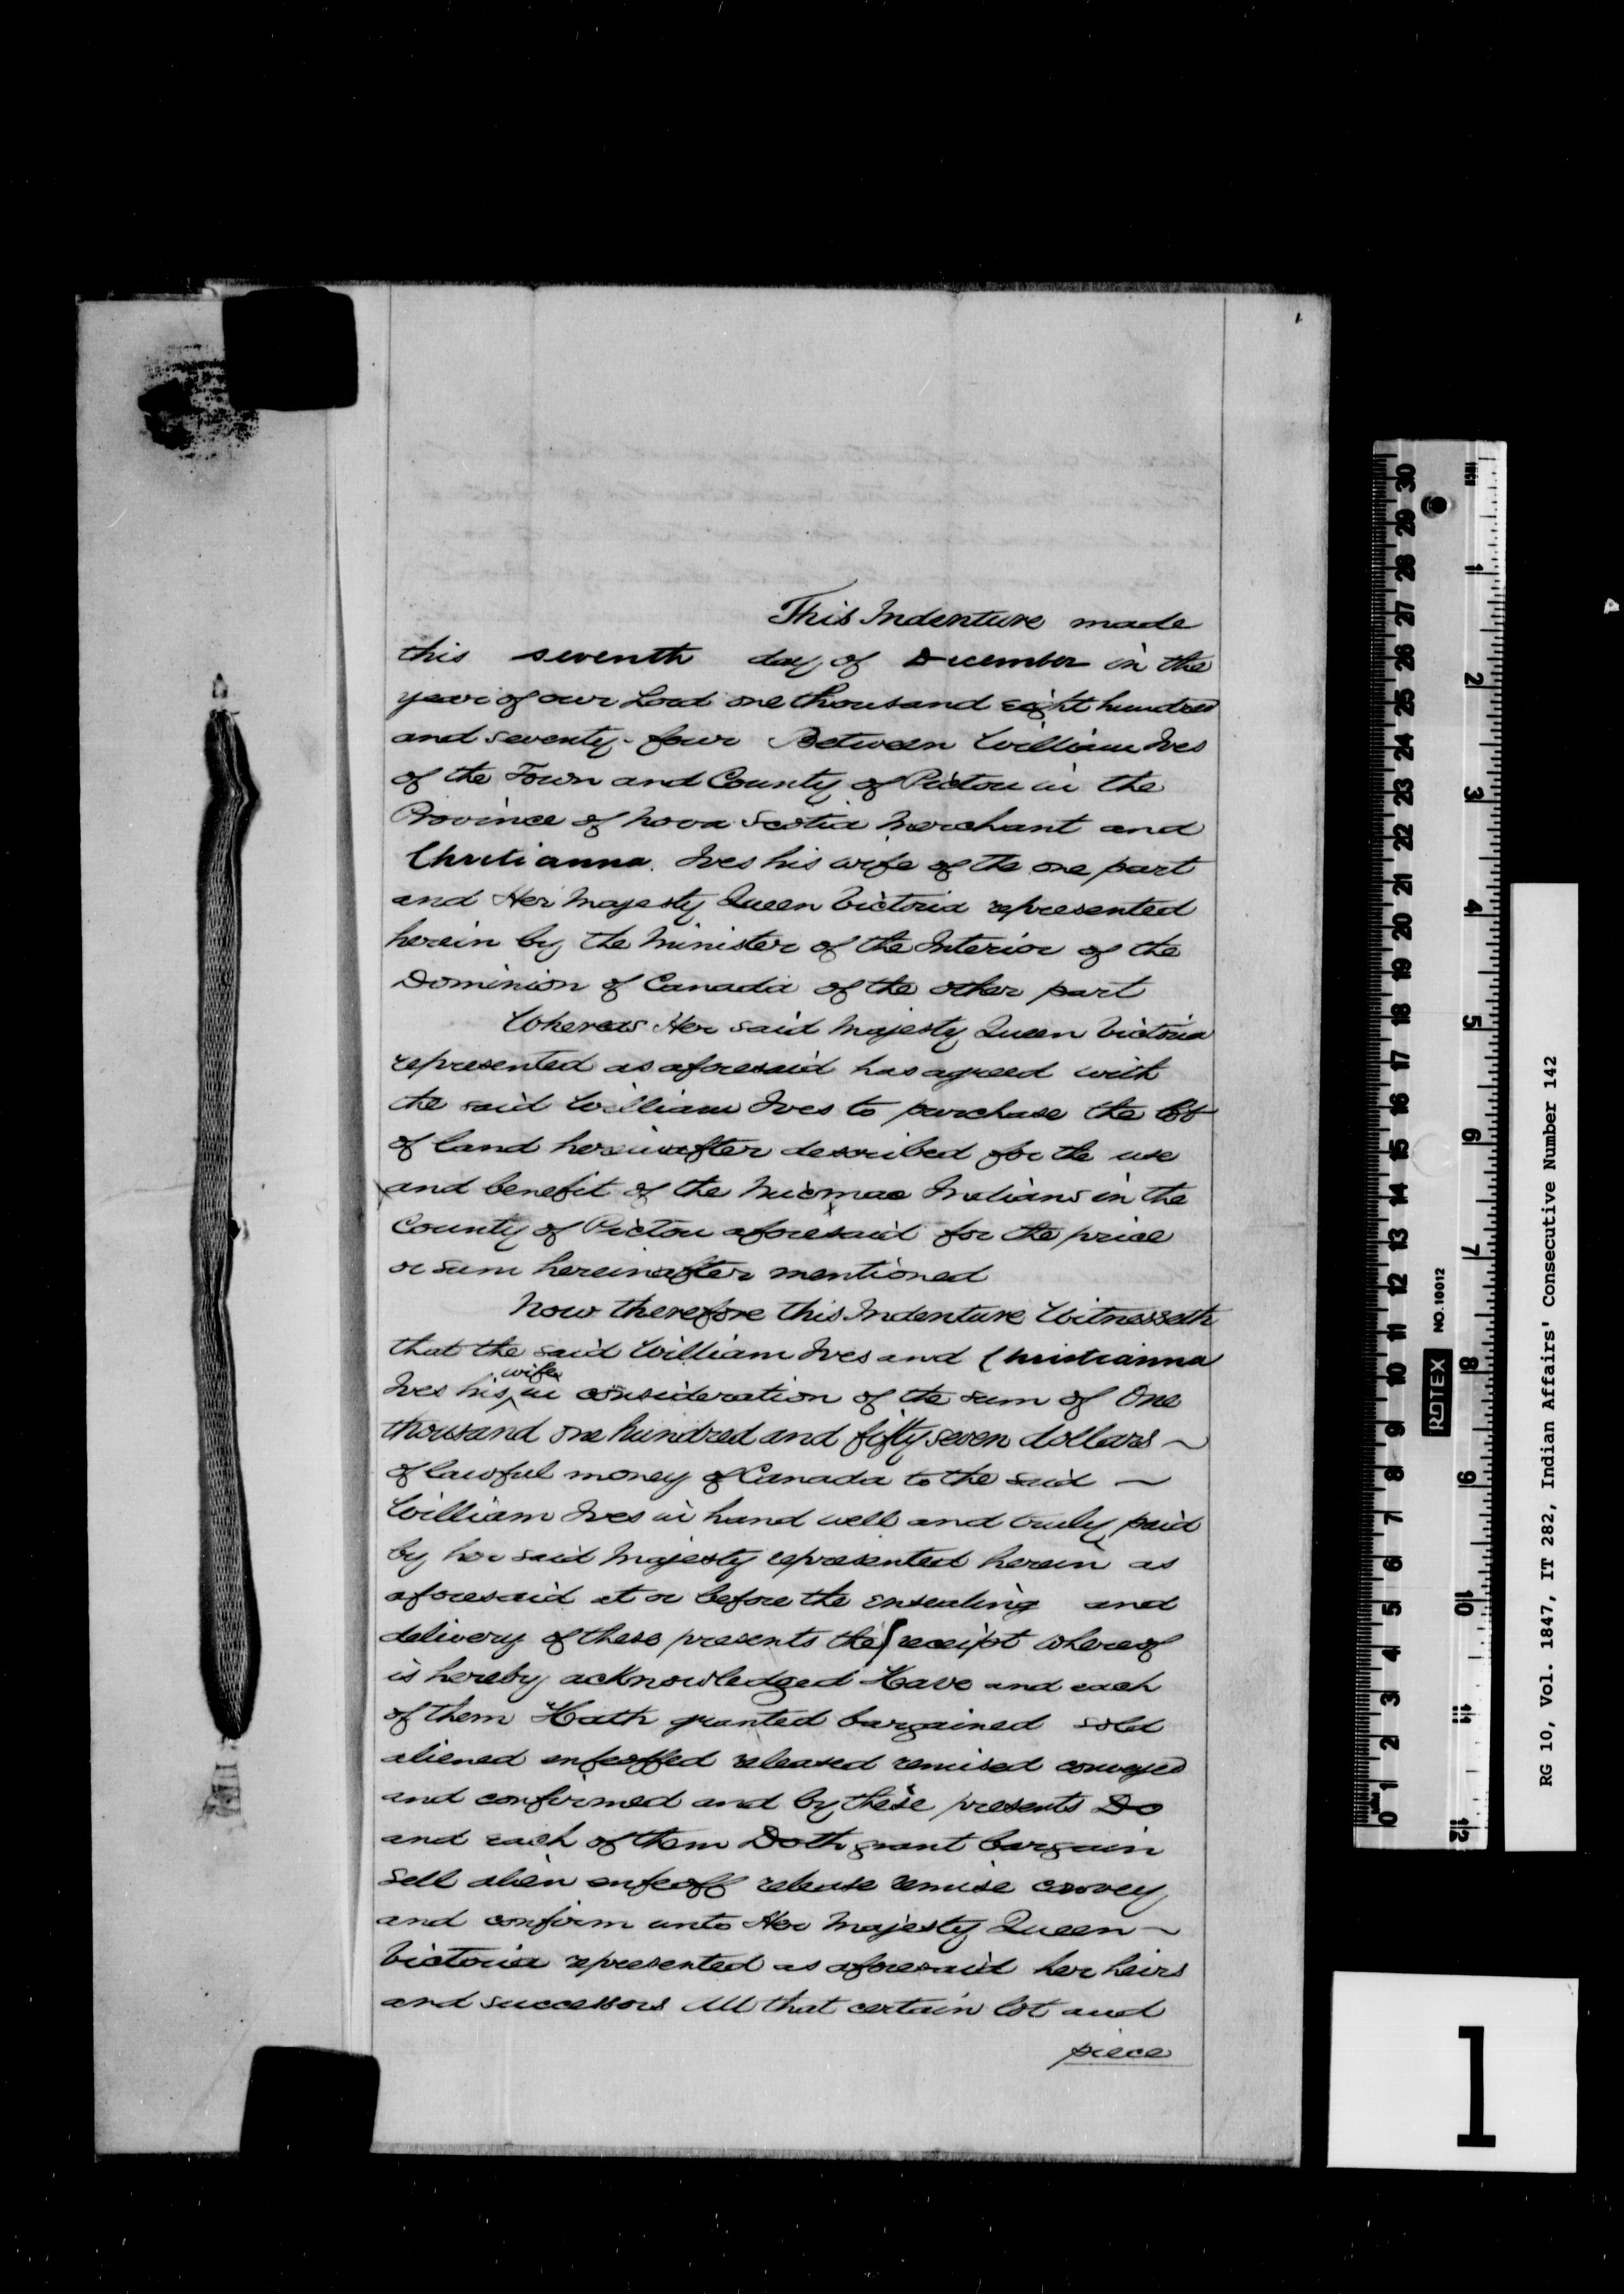 1
This Indenture made
this seventh day of December in the
year of our Lord one thousand eight hundred
and seventy-four Between William Ives
of the Town and County of Pictou in the
Province of Nova Scotia Merchant and
Christianna Ives his wife of the one part
and Her Majesty Queen Victoria represented
herein by the Minister of the Interior of the
Dominion of Canada of the other part
Whereas Her said Majesty Queen Victoria
represented as aforesaid has agreed with
the said William Ives to purchase the lot
of land hereinafter described for the use
and benefit of the Micmac Indians in the
County of Pictou aforesaid for the price
or sum hereinafter mentioned
Now therefore this Indenture Witnesseth
that the said William Ives and Christianna
Ives his wife in consideration of the sum of One
thousand one hundred and fifty seven dollars ~
of lawful money of Canada to the said ~
William Ives in hand well and truly paid
by her said Majesty represented herein as
aforesaid at or before the ensealing and
delivery of these presents the receipt whereof
is hereby acknowledged Have and each
of them Hath granted bargained sold
aliened enfeoffed released remised conveyed
and confirmed and by these presents Do
and each of them Doth grant bargain
sell alien enfeoff release remise convey
and confirm unto Her Majesty Queen ~
Victoria represented as aforesaid her heirs
and successors All that certain lot and
piece
30 29 28 27 26 25 24 23 22 21 20 19 18 17 16 15 14 13 12 11 10 9 8 7 6 5 4 3 2 1 0
1 2 3 4 5 6 7 8 9 10 11 12
ROTEX NO. 10012
RG 10, Vol. 1847, IT 282, Indian Affairs' Consecutive Number 142
1